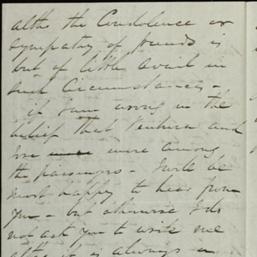 altho the Condolence or
sympathy of friends is
but of little avail in
such circumstances -
if I am wrong in the
belief that Ventura and
were among
the passengers - I will be
most happy to hear from
you - but otherwise I do
not ask you to write me
altho it is always a